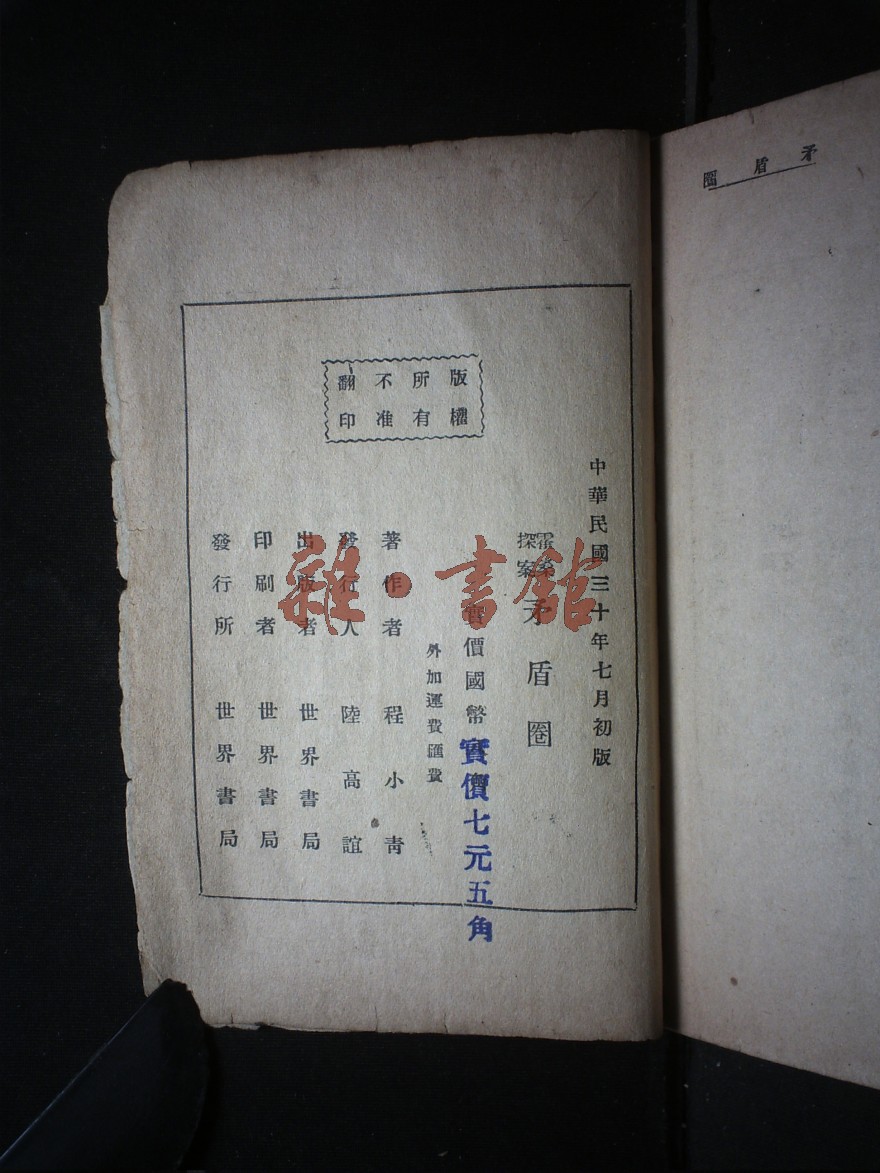 矛盾圈
版權
所有
不准
翻印
中華民國三十年七月初版
霍桑
探案
矛盾圈
實價國幣
實價七元五角
外加運費匯費
著作者 程小青
發行人 陸高誼
出版者 世界書局
印刷者 世界書局
發行所 世界書局
雜·書館